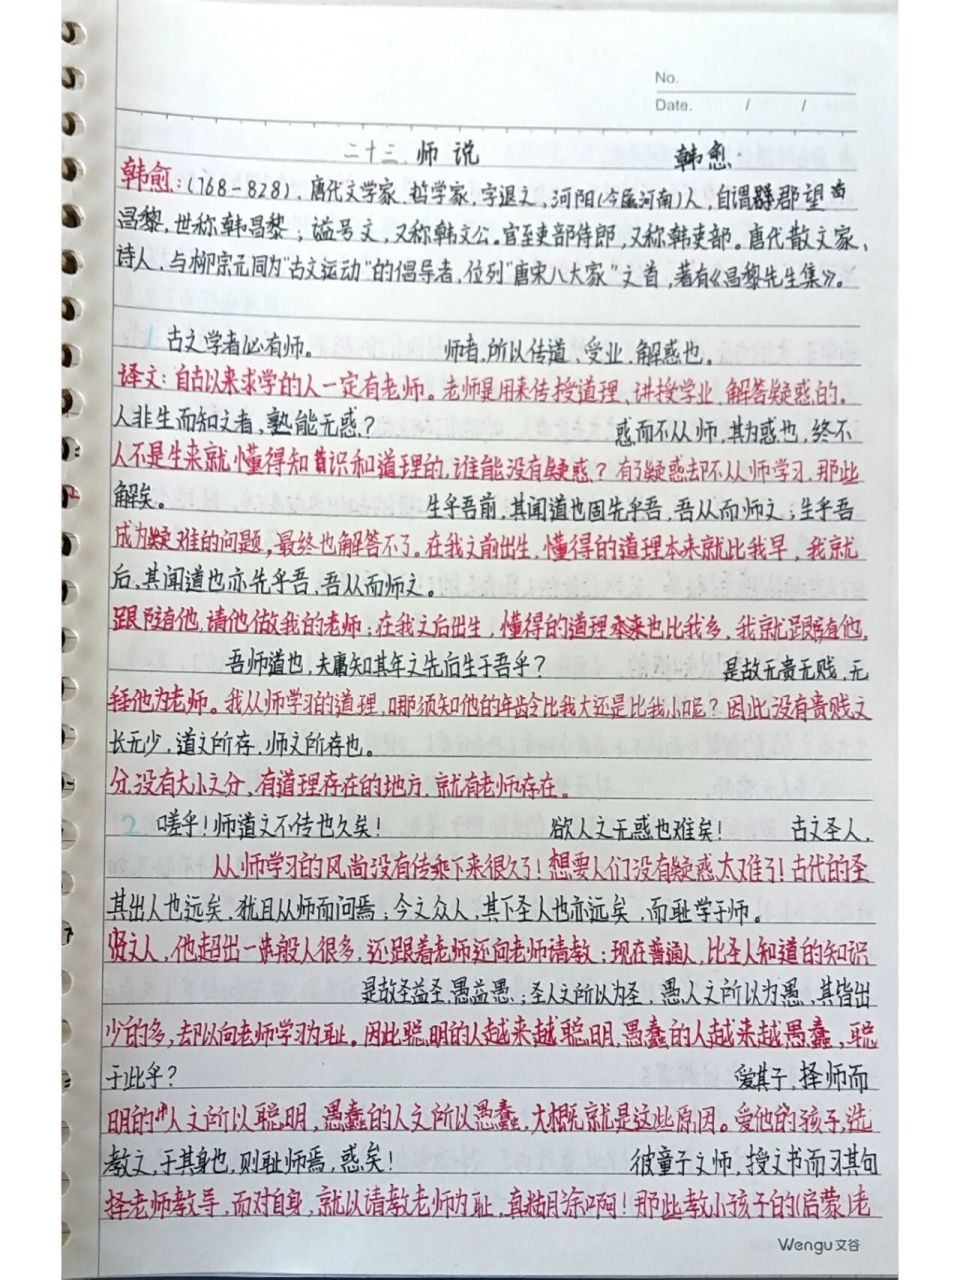 No.
Date. / /
二十三 师说 韩愈
韩愈:(768-828),唐代文学家、哲学家,字退之,河阳(今属河南)人,自谓郡望
昌黎,世称韩昌黎;谥号文,又称韩文公。官至吏部侍郎,又称韩吏部。唐代散文家、
诗人,与柳宗元同为"古文运动"的倡导者,位列"唐宋八大家"之首,著有《昌黎先生集》。
1 古之学者必有师。 师者,所以传道、受业、解惑也。
译文:自古以来求学的人一定有老师。老师是用来传授道理、讲授学业、解答疑惑的。
人非生而知之者,孰能无惑? 惑而不从师,其为惑也,终不
人不是生来就懂得知识和道理的,谁能没有疑惑?有了疑惑却不从师学习,那些
解矣。 生乎吾前,其闻道也固先乎吾,吾从而师之;生乎吾
成为疑难的问题,最终也解答不了。在我之前出生,懂得的道理本来就比我早,我就
后,其闻道也亦先乎吾,吾从而师之。
跟随他,请他做我的老师;在我之后出生,懂得的道理本来也比我多,我就跟随他,
吾师道也,夫庸知其年之先后生于吾乎? 是故无贵无贱,无
拜他为老师。我从师学习的道理,哪须知他的年龄比我大还是比我小呢?因此没有贵贱之
长无少,道之所存,师之所存也。
分,没有大小之分,有道理存在的地方,就有老师存在。
2 嗟乎!师道之不传也久矣! 欲人之无惑也难矣! 古之圣人,
从师学习的风尚没有传承下来很久了!想要人们没有疑惑太难了!古代的圣
其出人也远矣,犹且从师而问焉;今之众人,其下圣人也亦远矣,而耻学于师。
贤之人,他超出一般人很多,还跟着老师还向老师请教;现在普通人,比圣人知道的知识
是故圣益圣,愚益愚;圣人之所以为圣,愚人之所以为愚,其皆出
少的多,去却以向老师学习为耻。因此聪明的人越来越聪明,愚蠢的人越来越愚蠢,聪
于此乎? 爱其子,择师而
明的人之所以聪明,愚蠢的人之所以愚蠢,大概就是这些原因。爱他的孩子,选
教之,于其身也,则耻师焉,惑矣! 彼童子之师,授之书而习其句
择老师教导,而对自身,就以请教老师为耻,真糊涂啊!那些教小孩子的(启蒙)老
Wengu 文谷